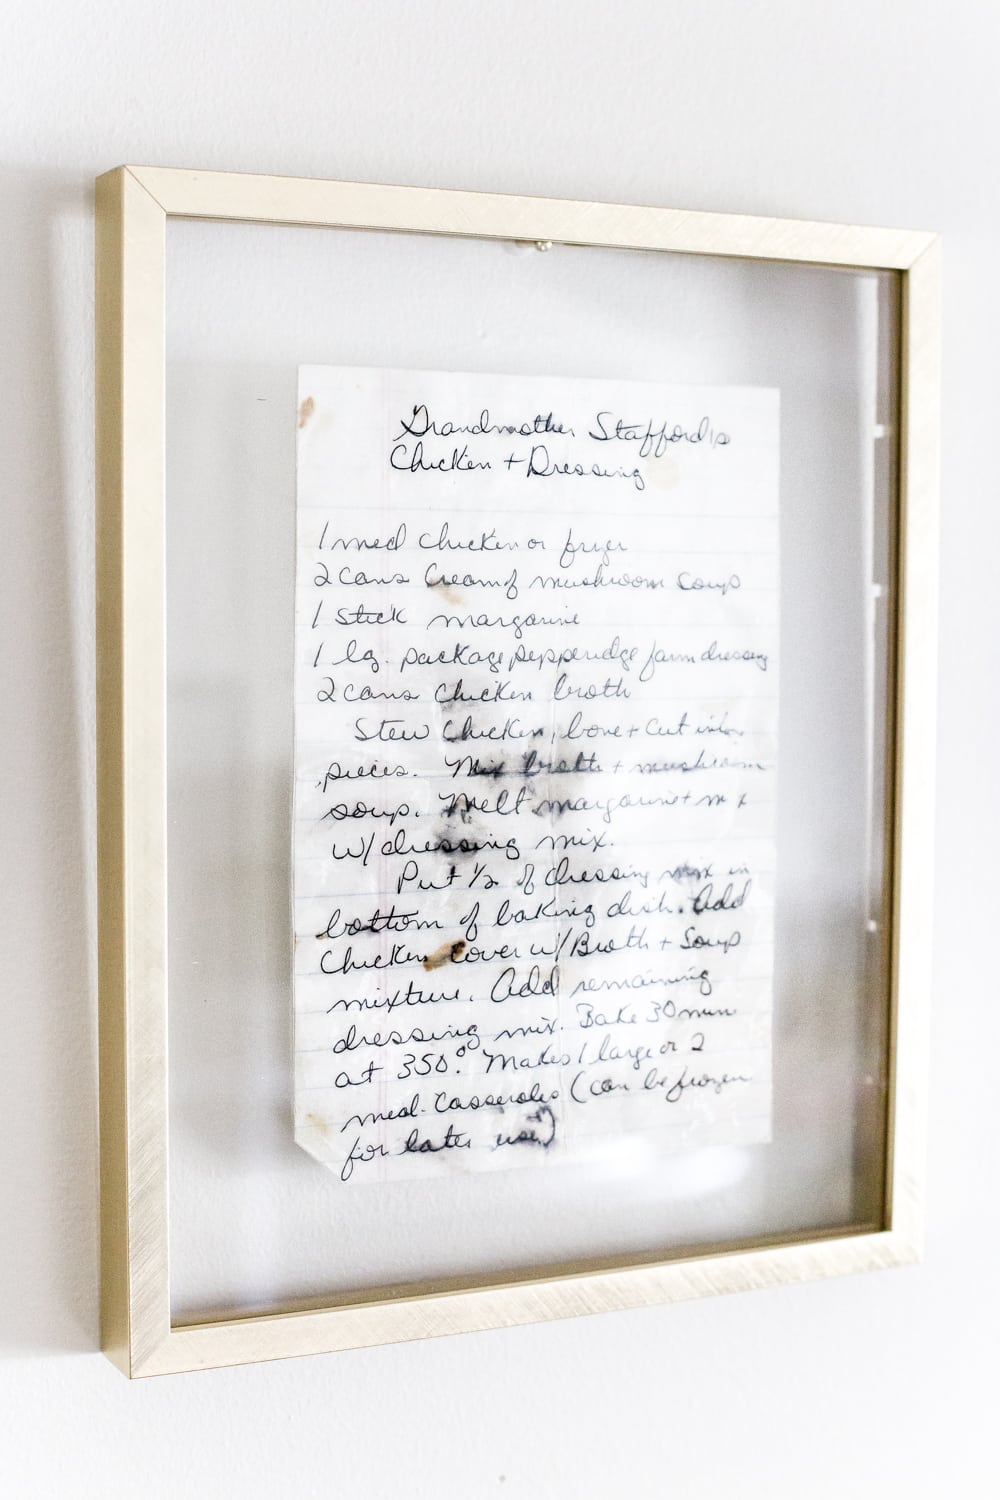 Grandmother Stafford's
Chicken + Dressing
1 med chicken or fryer
2 cans Cream of mushroom soup
1 Stick margarine
1 lg. package pepperidge farm dressing
2 cans chicken broth
Stew Chicken, bone + cut into
pieces. Mix broth + mushroom
soup. Melt margarine + mix
w/ dressing mix.
Put 1/2 of dressing mix in
bottom of baking dish. Add
Chicken cover w/ Broth + Soup
mixture. Add remaining
dressing mix. Bake 30 min
at 350°. Makes 1 large or 2
med. Casseroles (can be frozen
for later use)